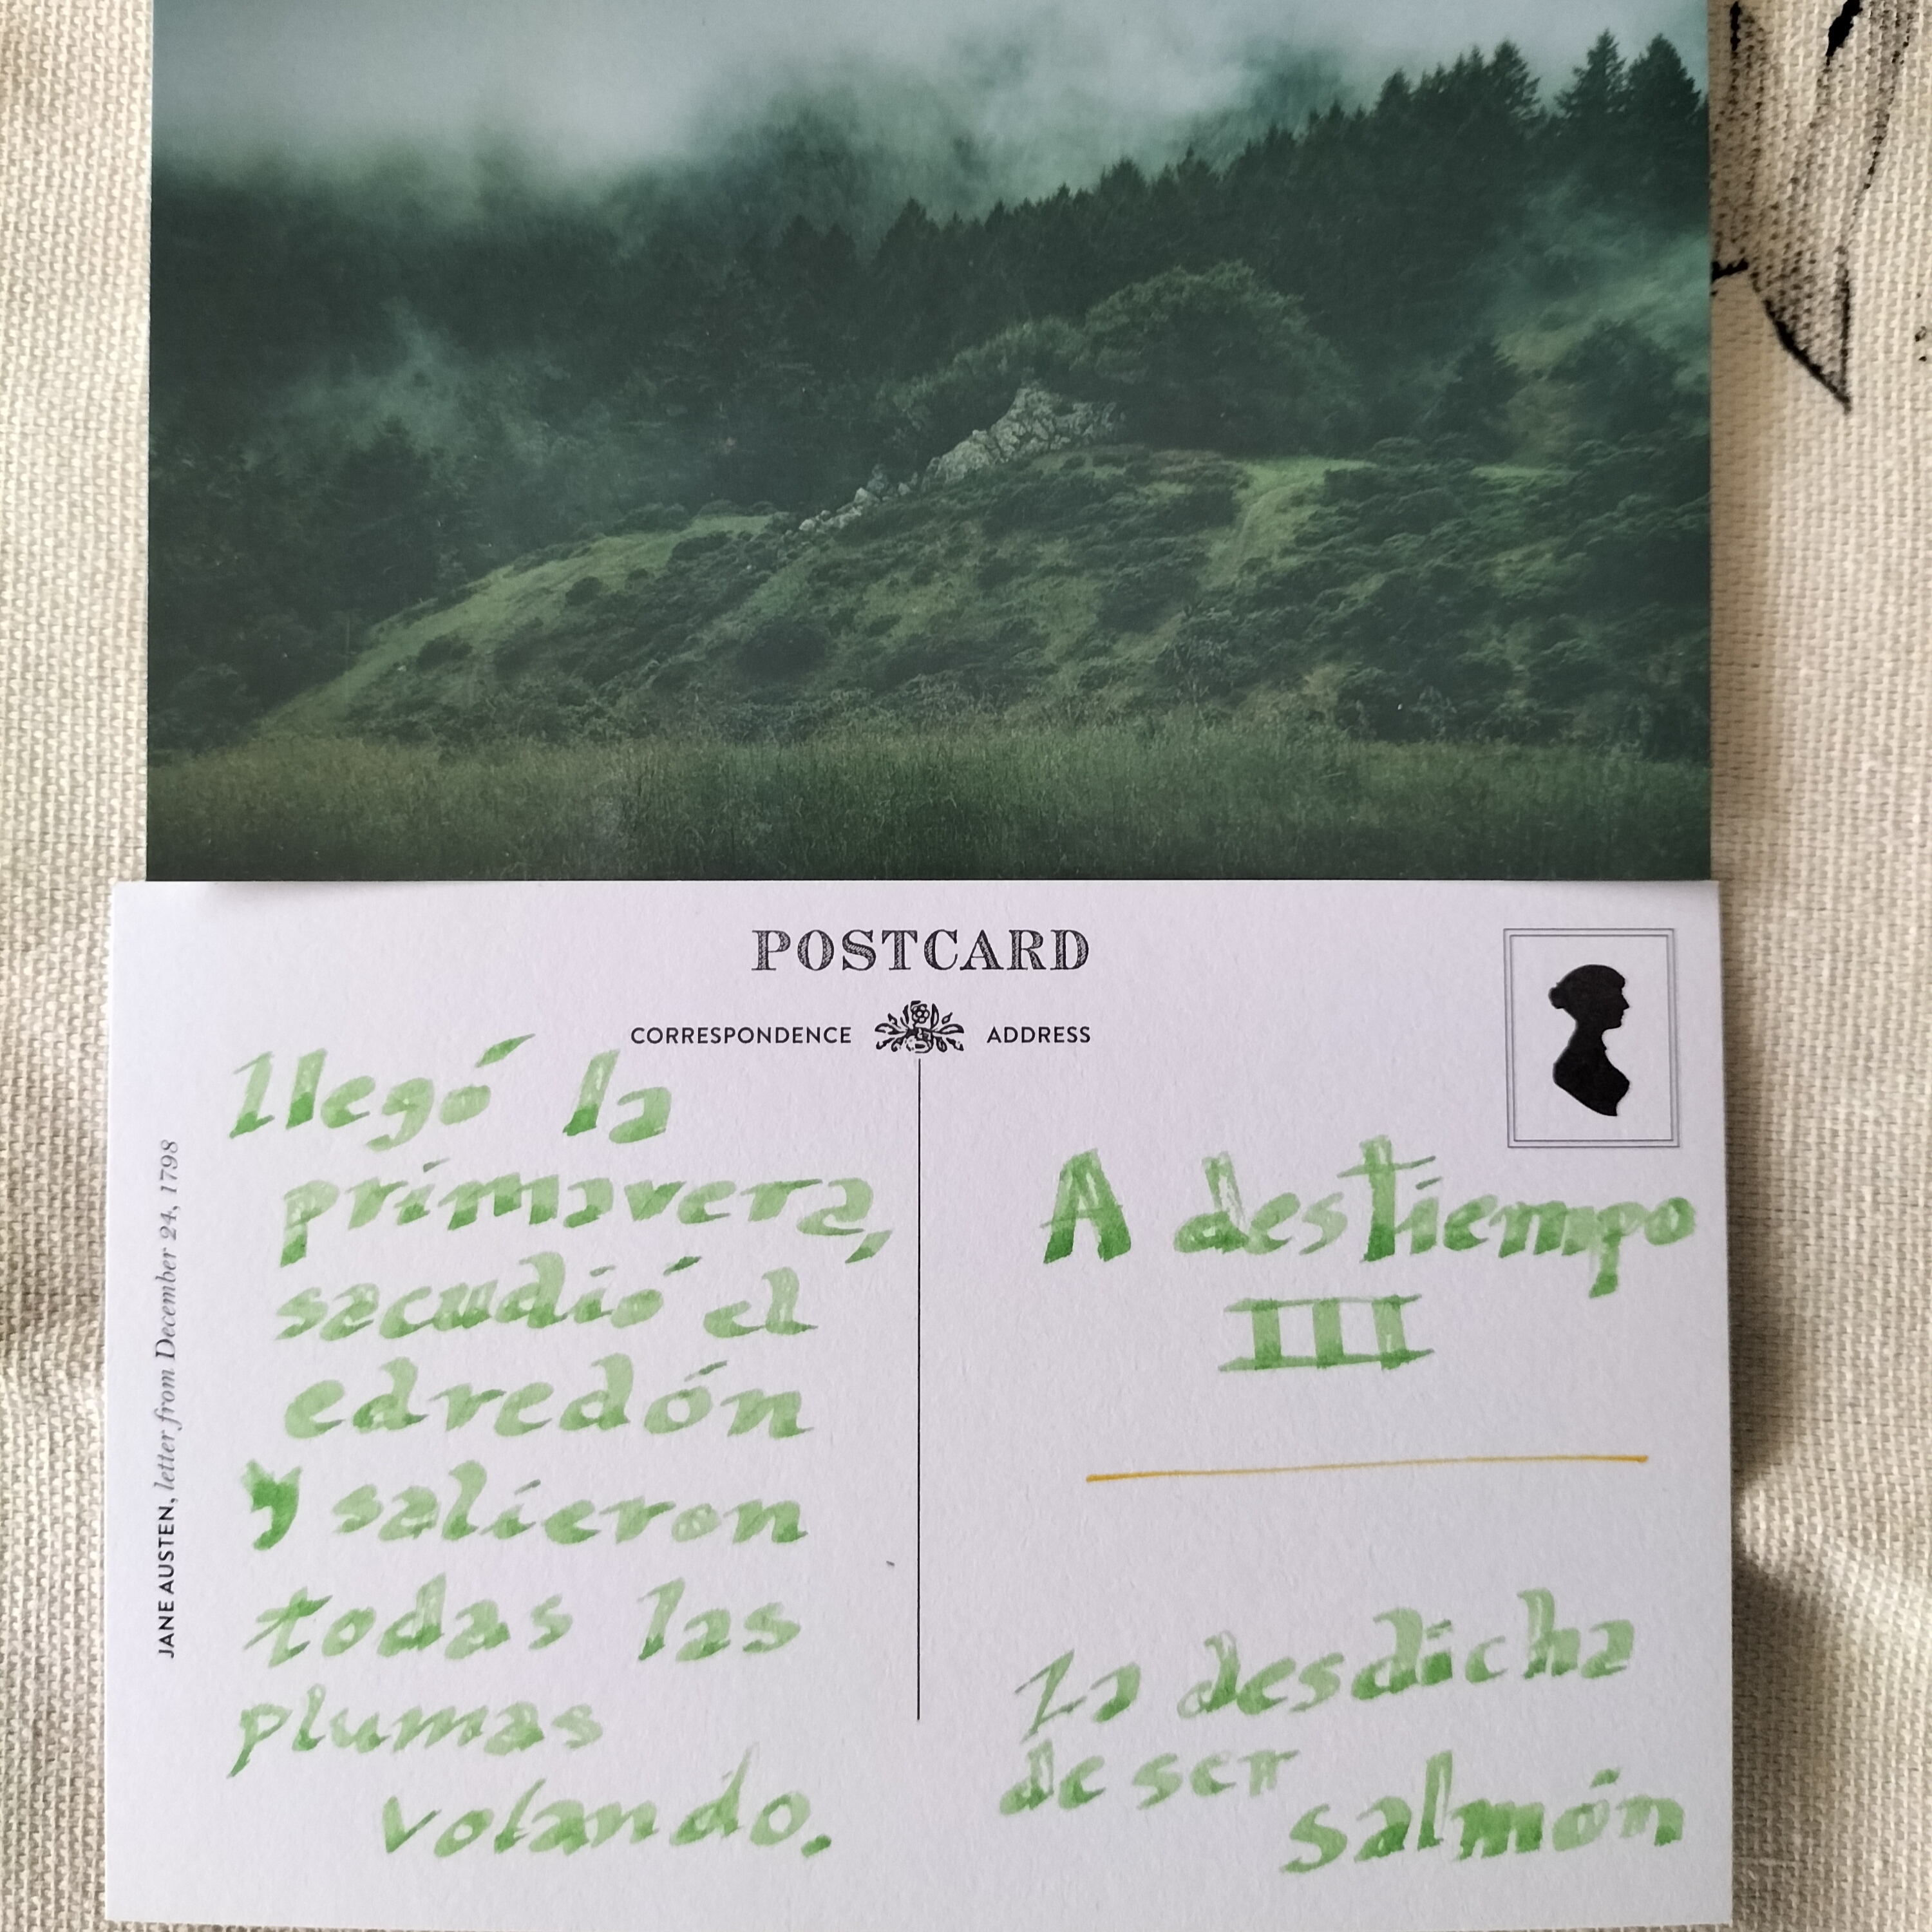 POSTCARD
CORRESPONDENCE ADDRESS
JANE AUSTEN, letter from December 24, 1798
llegó la
primavera,
sacudió el
edredón
y salieron
todas las
plumas
volando.
A destiempo
III
La desdicha
de ser
salmón